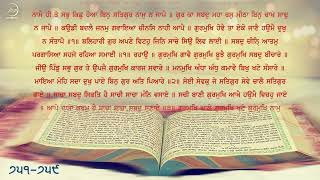 ਨਾਮੈ ਹੀ ਤੇ ਸਭੁ ਕਿਛੁ ਹੋਆ ਬਿਨੁ ਸਤਿਗੁਰ ਨਾਮੁ ਨ ਜਾਪੈ ॥ ਗੁਰ ਕਾ ਸਬਦੁ ਮਹਾ ਰਸੁ ਮੀਠਾ ਬਿਨੁ ਚਾਖੇ ਸਾਦੁ
ਨ ਜਾਪੈ ॥ ਕਉਡੀ ਬਦਲੈ ਜਨਮੁ ਗਵਾਇਆ ਚੀਨਸਿ ਨਾਹੀ ਆਪੈ ॥ ਗੁਰਮੁਖਿ ਹੋਵੈ ਤਾ ਏਕੋ ਜਾਣੈ ਹਉਮੈ ਦੁਖੁ
ਨ ਸੰਤਾਪੈ ॥੧॥ ਬਲਿਹਾਰੀ ਗੁਰ ਅਪਣੇ ਵਿਟਹੁ ਜਿਨਿ ਸਾਚੇ ਸਿਉ ਲਿਵ ਲਾਈ ॥ ਸਬਦੁ ਚੀਨ੍ਹਿ ਆਤਮੁ
ਪਰਗਾਸਿਆ ਸਹਜੇ ਰਹਿਆ ਸਮਾਈ ॥੧॥ ਰਹਾਉ ॥ ਗੁਰਮੁਖਿ ਗਾਵੈ ਗੁਰਮੁਖਿ ਬੂਝੈ ਗੁਰਮੁਖਿ ਸਬਦੁ ਬੀਚਾਰੇ ॥
ਜੀਉ ਪਿੰਡੁ ਸਭੁ ਗੁਰ ਤੇ ਉਪਜੈ ਗੁਰਮੁਖਿ ਕਾਰਜ ਸਵਾਰੇ ॥ ਮਨਮੁਖਿ ਅੰਧਾ ਅੰਧੁ ਕਮਾਵੈ ਬਿਖੁ ਖਟੇ ਸੰਸਾਰੇ ॥
ਮਾਇਆ ਮੋਹਿ ਸਦਾ ਦੁਖੁ ਪਾਏ ਬਿਨੁ ਗੁਰ ਅਤਿ ਪਿਆਰੇ ॥੨॥ ਸੋਈ ਸੇਵਕੁ ਜੇ ਸਤਿਗੁਰ ਸੇਵੇ ਚਾਲੈ ਸਤਿਗੁਰ
ਭਾਏ ॥ ਸਾਚਾ ਸਬਦੁ ਸਿਫਤਿ ਹੈ ਸਾਚੀ ਸਾਚਾ ਮੰਨਿ ਵਸਾਏ ॥ ਸਚੀ ਬਾਣੀ ਗੁਰਮੁਖਿ ਆਖੈ ਹਉਮੈ ਵਿਚਹੁ ਜਾਏ
॥ ਆਪੇ ਦਾਤਾ ਕਰਮੁ ਹੈ ਸਾਚਾ ਸਾਚਾ ਸਬਦੁ ਸੁਣਾਏ ॥੩॥ ਗੁਰਮੁਖਿ ਘਾਲੇ ਗੁਰਮੁਖਿ ਖਟੇ ਗੁਰਮੁਖਿ ਨਾਮੁ
੭੫੧-੭੫੯